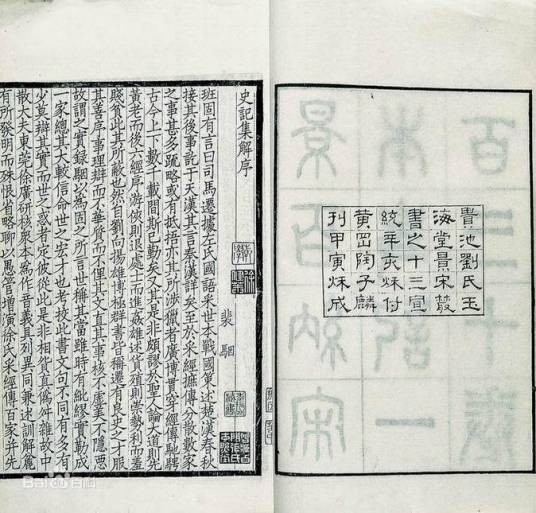 貴池劉氏玉
海堂景宋叢
書之十三宣
統辛亥秌付
黃岡陶子麟
刊甲寅秌成
景百衲宋
本史記一
百三十卷
史記集解序
裴駰
班固有言曰司馬遷據左氏國語采世本戰國策述楚漢春秋
接其後事訖于天漢其言秦漢詳矣至於采經摭傳分散數家
之事甚多疏略或有抵捂亦其所涉獵者廣博貫穿經傳馳騁
古今上下數千載間斯已勤矣又其是非頗謬於聖人論大道則先
黃老而後六經序游俠則退處士而進姦雄述貨殖則崇勢利而羞
賤貧此其所蔽也然自劉向揚雄博極群書皆稱遷有良史之才服
其善序事理辯而不華質而不俚其文直其事核不虛美不隱惡
故謂之實錄駰以為固之所言世稱其當雖時有紕繆實勒成
一家總其大較信命世之宏才也考校此書文句不同有多有
少莫辯其實而世之惑者定彼從此是非相貿真偽舛雜故中
散大夫東莞徐廣研核眾本為作音義具列異同兼述訓解麤
有所發明而殊恨省略聊以愚管增演徐氏采經傳百家并先
Baidu百科